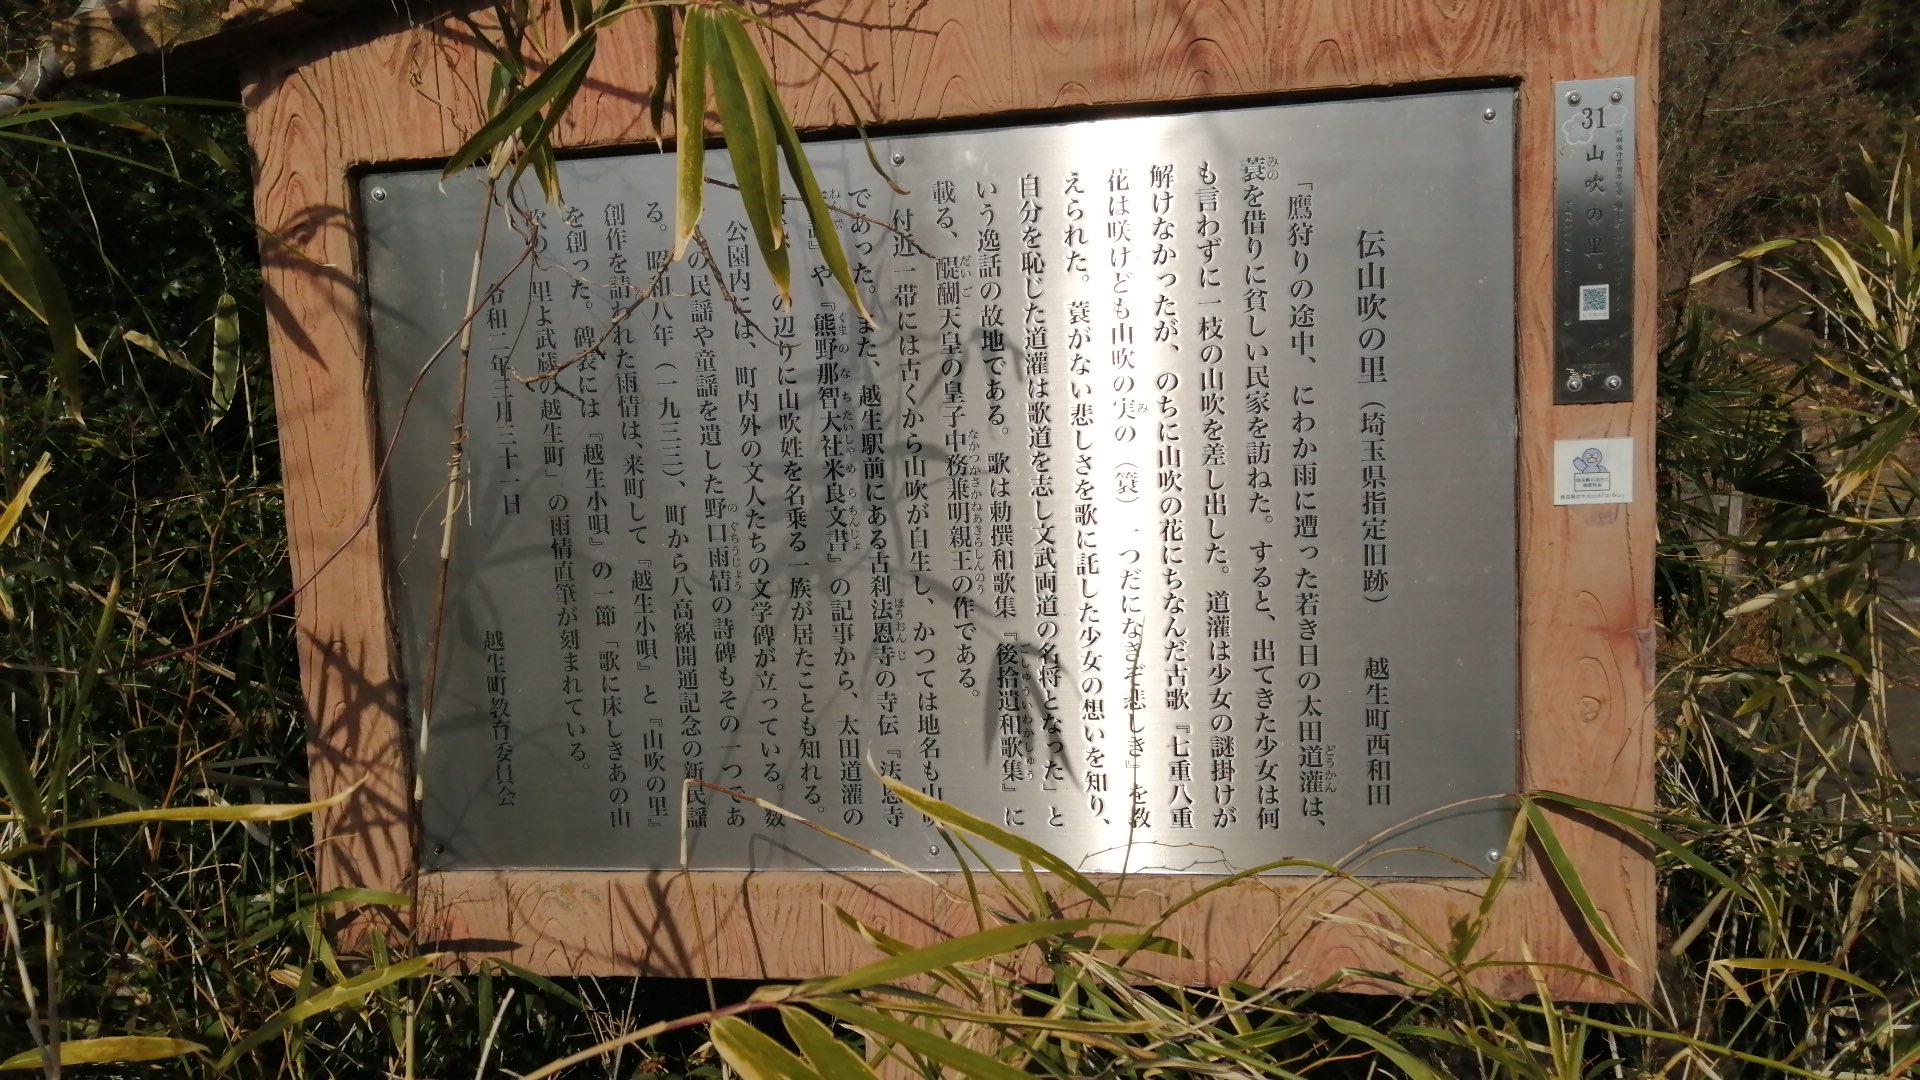 伝山吹の里（埼玉県指定旧跡） 越生町西和田
「鷹狩りの途中、にわか雨に遭った若き日の太田道灌は、
蓑を借りに貧しい民家を訪ねた。すると、出てきた少女は何
も言わずに一枝の山吹を差し出した。道灌は少女の謎掛けが
解けなかったが、のちに山吹の花にちなんだ古歌『七重八重
花は咲けども山吹の実の（簑）一つだになきぞ悲しき』を教
えられた。蓑がない悲しさを歌に託した少女の想いを知り、
自分を恥じた道灌は歌道を志し文武両道の名将となった」と
いう逸話の故地である。歌は勅撰和歌集『後拾遺和歌集』に
載る、醍醐天皇の皇子中務兼明親王の作である。
付近一帯には古くから山吹が自生し、かつては地名も山吹
であった。また、越生駅前にある古刹法恩寺の寺伝『法恩寺
』や『熊野那智大社米良文書』の記事から、太田道灌の
の辺りに山吹姓を名乗る一族が居たことも知れる。
公園内には、町内外の文人たちの文学碑が立っている。数
の民謡や童謡を遺した野口雨情の詩碑もその一つであ
る。昭和八年（一九三三）、町から八高線開通記念の新民謡
創作を請われた雨情は、来町して『越生小唄』と『山吹の里』
を創った。碑表には『越生小唄』の一節「歌に床しきあの山
吹の 里よ武蔵の越生町」の雨情直筆が刻まれている。
令和二年三月三十一日
越生町教育委員会
31 山吹の里。